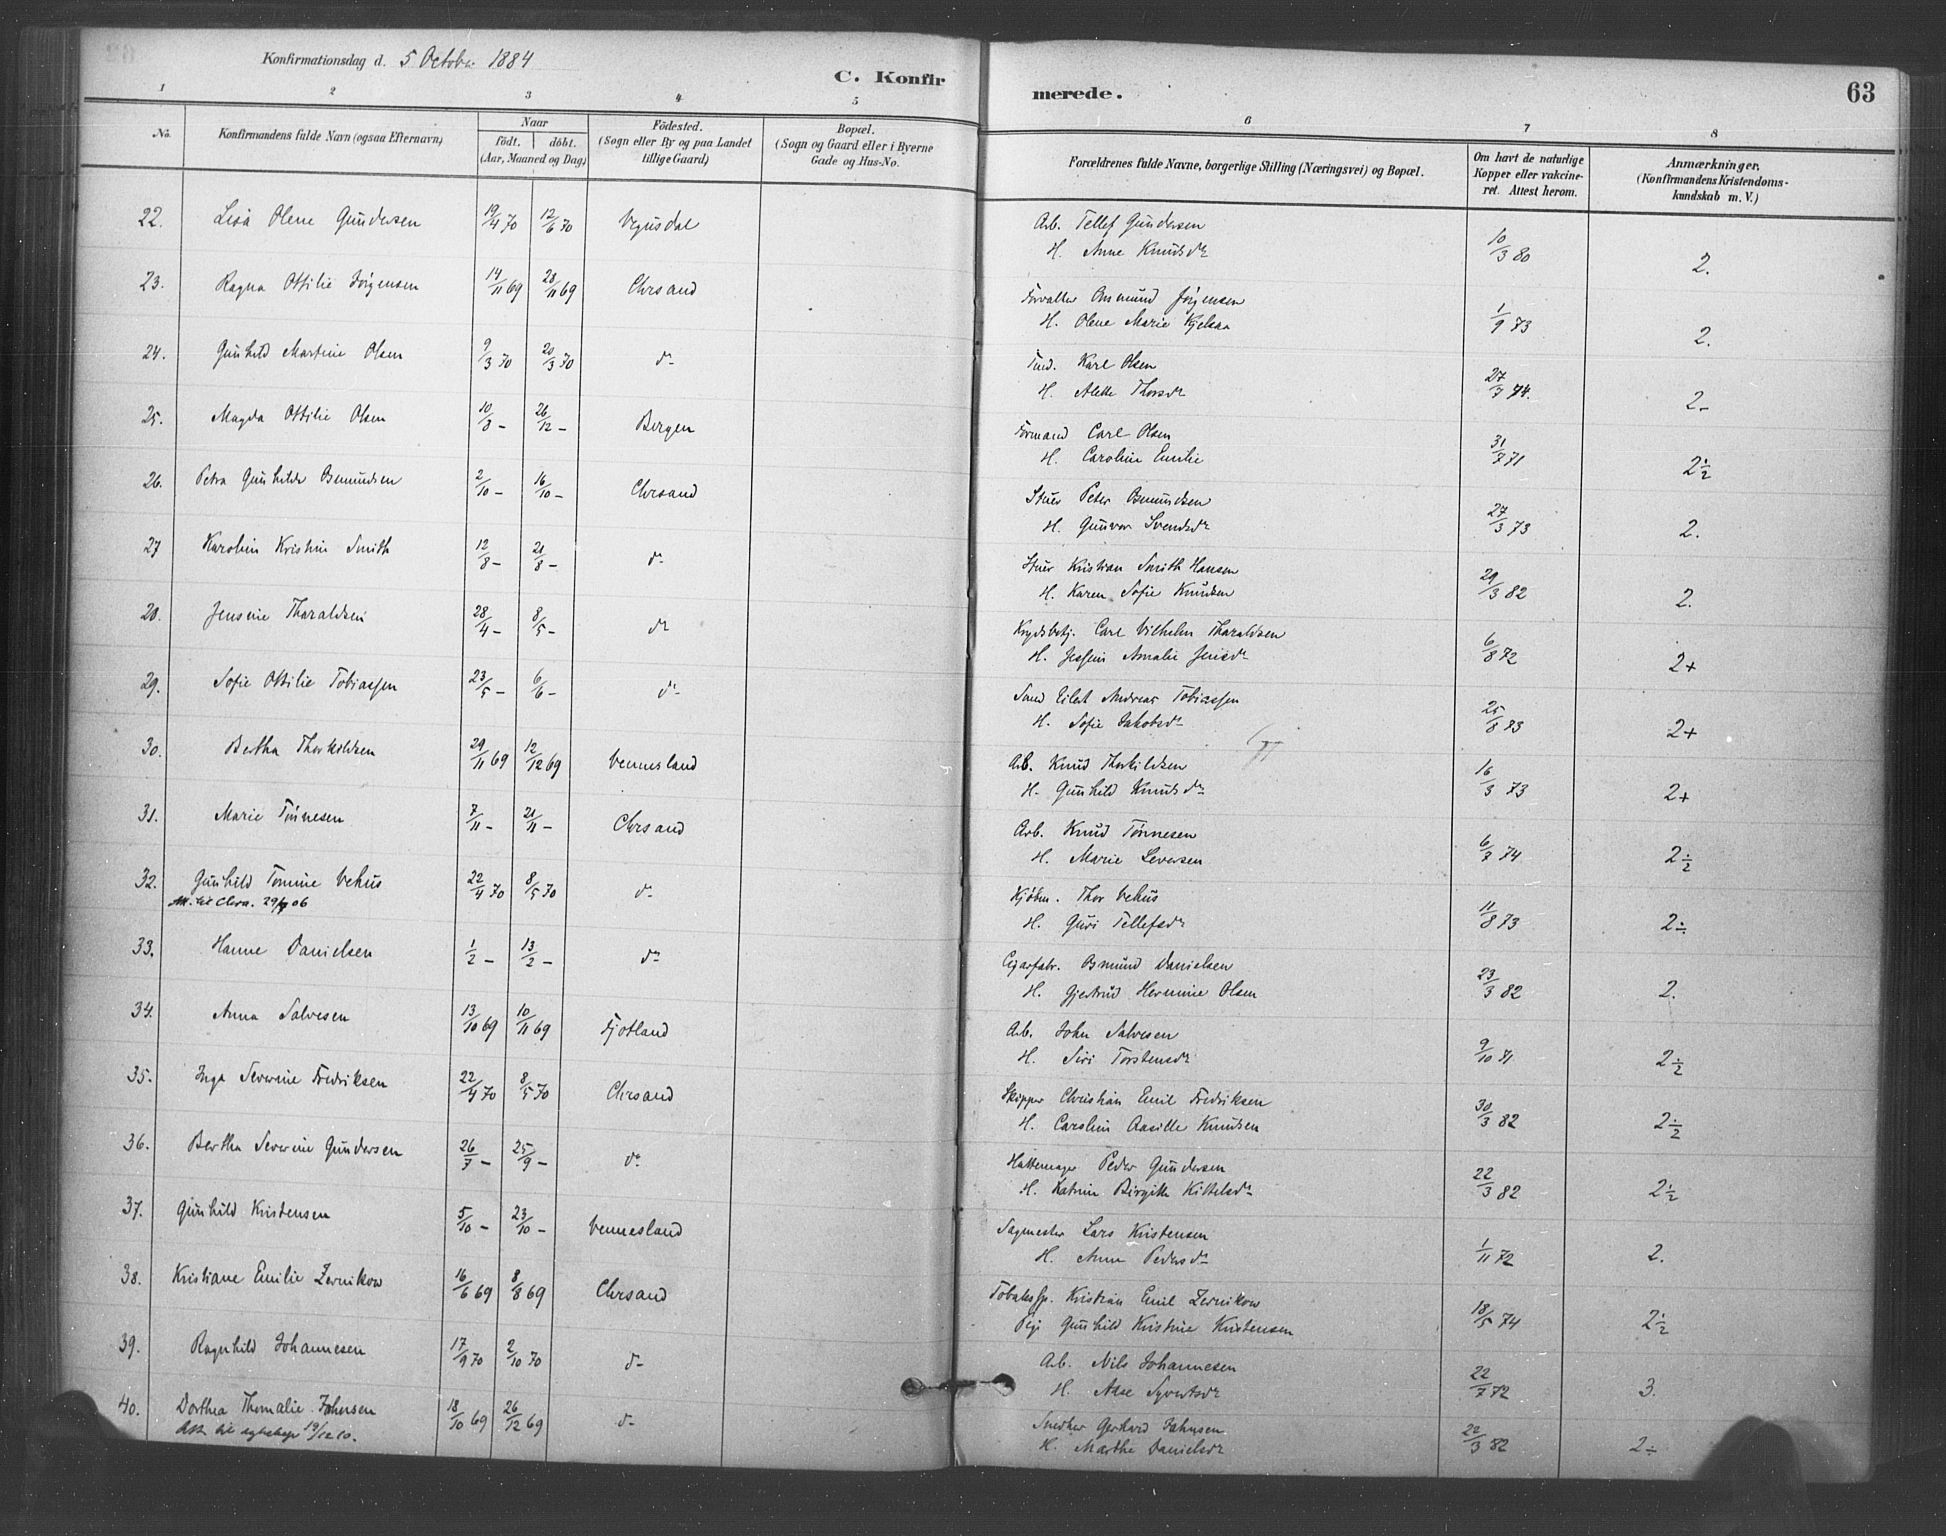 Konfirmationsdag d. 5 October 1884
C. Konfirmerede.
63
1 2 3 4 5 6 7 8
No.
Konfirmandens fulde Navn (ogsaa Efternavn)
Naar
födt. döbt.
(Aar, Maaned og Dag)
Födested.
(Sogn eller By og paa Landet
tillige Gaard)
Bopæl.
(Sogn og Gaard eller i Byerne
Gade og Hus-No.
Forældrenes fulde Navne, borgerlige Stilling (Næringsvei) og Bopæl.
Om havt de naturlige
Kopper eller vakcine-
ret. Attest herom.
Anmærkninger,
(Konfirmandens Kristendoms-
kundskab m. V.)
22. Lisa Olene Gundersen 19/4 70 12/6 70 Vegusdal Arb. Tellef Gundersen
H. Anne Knudsdr 10/3 80 2.
23. Ragna Ottilie Jörgensen 14/11 69 28/11 69 Chrsand Forvalter Osmund Jörgensen
H. Olene Marie 1/9 73 2.
24. Gunhild Martine Olsen 9/3 70 20/3 70 do Karl Olsen
H. Alette Thorsdr 27/7 74. 2-
25. Magda Ottilie Olsen 10/3 - 26/12 - Bergen Formand Carl Olsen
H. Caroline Emilie 31/7 71 2÷2
26. Petra Gunhilde Osmundsen 2/10 - 16/10 - Chrsand Stuer Peter Osmundsen
H. Gunvor Svendsdr 27/3 73 2.
27 Karoline Kristine Smith 12/8 - 21/8 - do Stuer Kristian Smith Hansen
H. Karen Sofie Knudsen 29/3 82 2.
28. Jensine Tharaldsen 28/4 - 8/5 - do Krydsbetj. Carl Vilhelm Tharaldsen
H. Amalie Jensdr 6/8 72 2+
29. Sofie Ottilie Tobiassen 23/5 - 6/6 - do Eilert Andreas Tobiassen
H. Sofie Jakobsdr 25/8 73 2+
30. Bertha Thorkildsen 29/11 69 12/12 69 Vennesland Arb. Knud Thorkildsen
H. Gunhild Knudsdr 16/3 73 2+
31. Marie Tönnesen 7/11 - 21/11 - Chrsand Arb. Knud Tönnesen
H. Marie Seversen 6/7 74 2÷2
32. Gunhild Tomine Vehus 22/4 70 8/5 70 do Kjöbm. Thor Vehus
H. Guri Tellefsdr 11/8 73 2÷
33. Hanne Danielsen 1/2 - 13/2 - do Cigarfabr. Osmund Danielsen
H. Gjertrud Hermine Olsen 23/3 82 2.
34. Anna Salvesen 13/10 69 10/11 69 Fjotland Arb. John Salvesen
H. Siri Torstensdr 9/10 71 2÷2
35. Inga Severine Fredriksen 22/4 70 8/5 70 Chrsand Skipper Christian Emil Fredriksen
H. Caroline Aasille Knudsen 30/3 82 2÷2
36. Bertha Severine Gundersen 26/7 - 25/9 - do Hattemager Peder Gundersen
H. Katrine Birgitte Kittelsdr 22/3 82 2÷2
37. Gunhild Kristensen 5/10 - 23/10 - Vennesland Sagmester Lars Kristensen
H. Anne Pedersdr 1/11 72 2.
38. Kristiane Emilie Zernikow 16/6 69 8/8 69 Chrsand Kristian Emil Zernikow
Pige Gunhild Kristine Kristensen 18/5 74 2÷2
39. Ragnhild Johannesen 17/9 70 2/10 70 do Arb. Nils Johannesen
H. Aase Syvertsdr 22/7 72 3.
40. Dorthea Thomalie Jahnsen 18/10 69 26/12 69 do Snedker Gerhard Jahnsen
19/12 10. H. Marthe Danielsdr 22/3 82 2÷